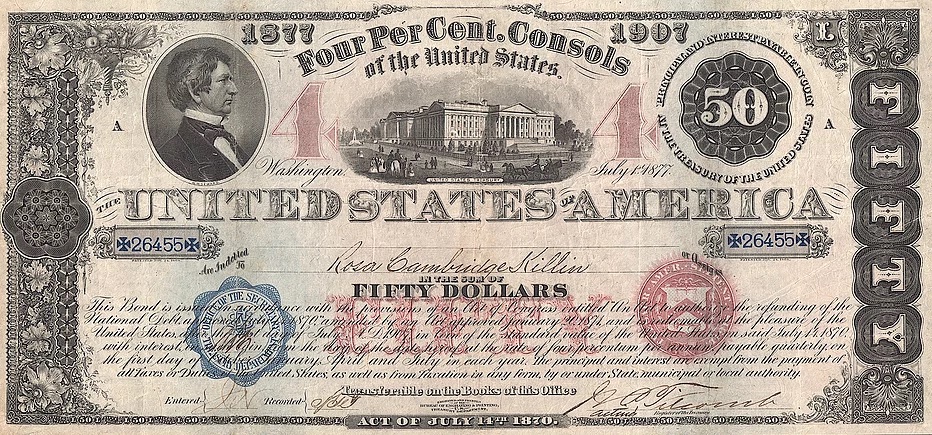 1877
Four Per Cent. Consols
1907
of the United States.
PRINCIPAL AND INTEREST PAYABLE IN COIN
50
AT THE TREASURY OF THE UNITED STATES
A
4
4
A
L
FIFTY
UNITED STATES TREASURY
Washington, July 1st 1877.
THE UNITED STATES OF AMERICA
26455
26455
Are Indebted To
Rosa Cambridge Killin
or
IN THE SUM OF
FIFTY DOLLARS
FIFTY
This Bond is issued in accordance with the provisions of an Act of Congress entitled An Act to authorize the refunding of the
National Debt, approved July 14, 1870, amended by an Act approved January 20, 1871, and is redeemable at the pleasure of the
United States, after the first day of July, 1907, in coin of the standard value of the United States on said July 14, 1870,
with interest in such coin from the day of the date hereof at the rate of four per centum per annum payable quarterly on
the first day of October, January, April and July in each year. The principal and interest are exempt from the payment of
all Taxes or Duties of the United States, as well as from Taxation in any form, by or under State, municipal or local authority.
Transferable on the Books of this Office
Entered Recorded
BUREAU OF ENGRAVING & PRINTING,
TREASURY DEPARTMENT
Register of the Treasury
ACT OF JULY 14TH 1870.